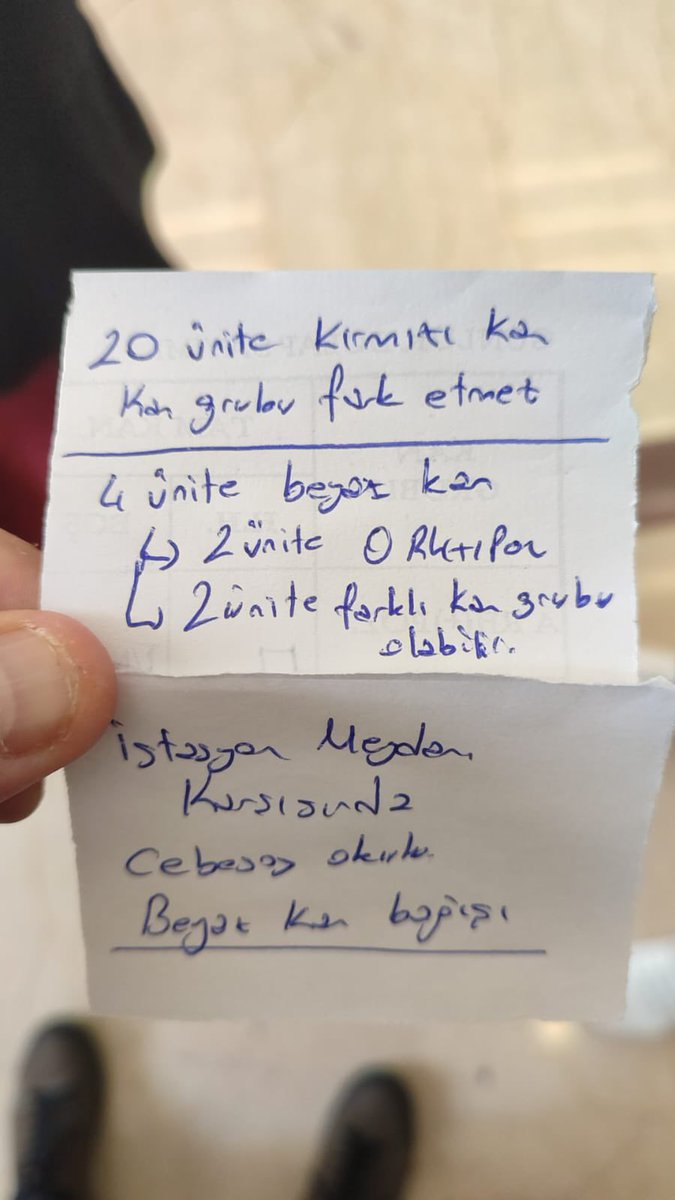 20 ünite kırmızı kan
Kan grubu fark etmez
4 ünite beyaz kan
↳ 2 ünite 0 RH+
↳ 2 ünite farklı kan grubu
olabilir.
İstasyon Meydanı
Karşısında
okulu
Beyaz kan bağışı